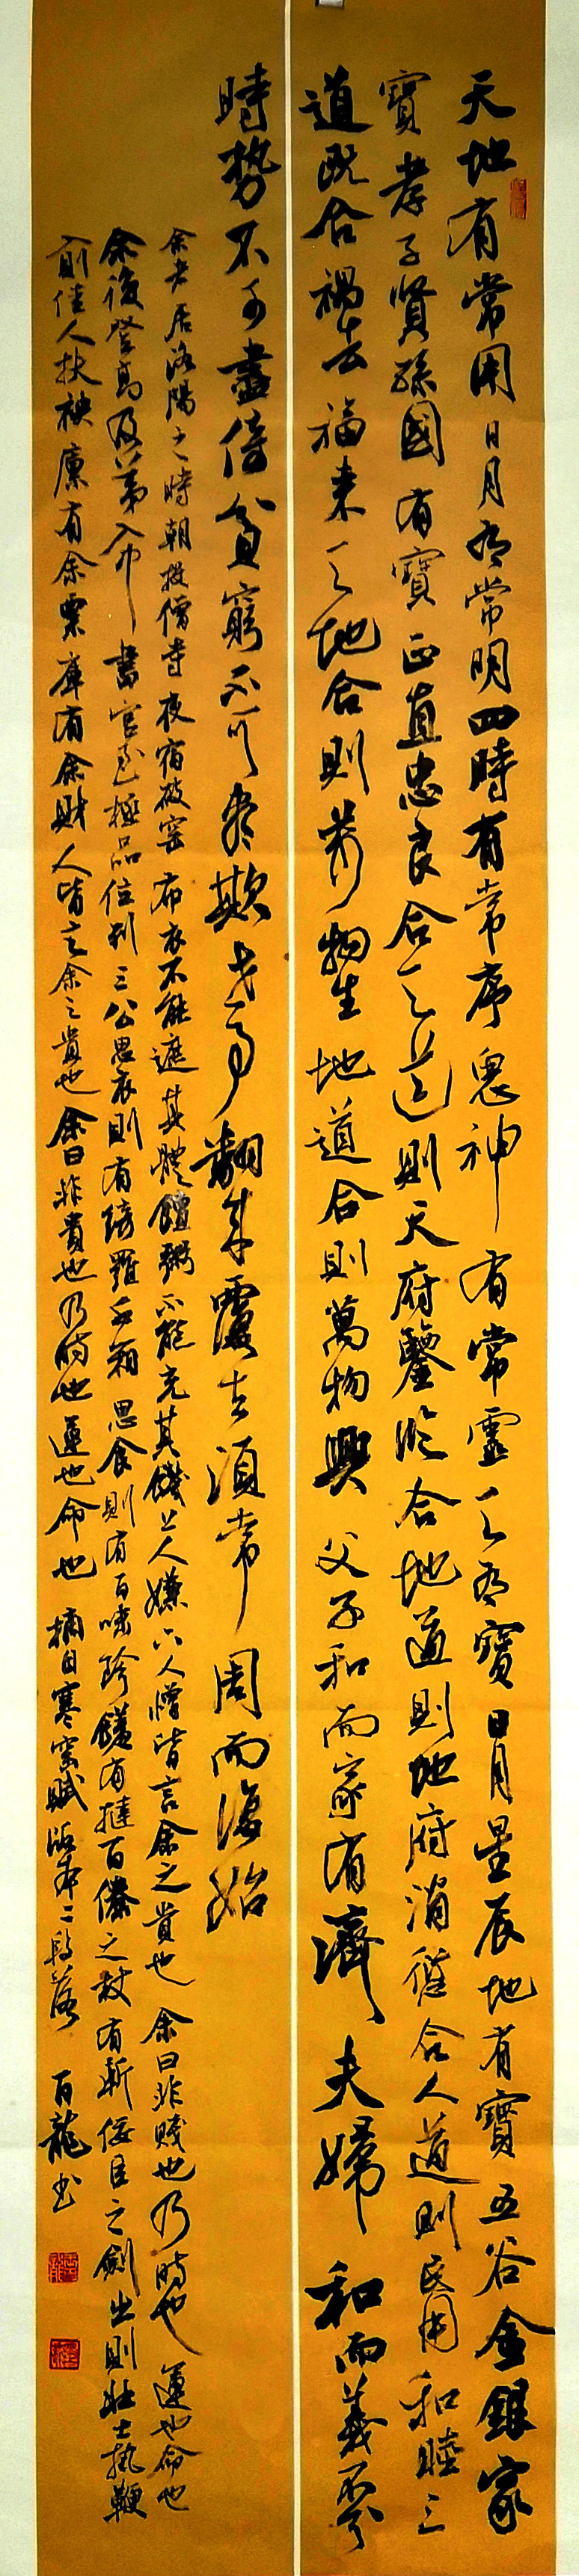 天地有常用日月有常明四時有常序鬼神有常靈天有寶日月星辰地有寶五谷金銀家
寶孝子賢孫國有寶正直忠良合天道則天府鑒臨合地道則地府消愆合人道則民用和睦三
道既合禍去福来天地合則萬物生地道合則萬物興父子和而家有濟夫婦和而義不分
時勢不可盡倚貧窮不可盡欺世事翻來覆去須當周而復始
余者居洛陽之時朝投僧寺夜宿破窑布衣不能遮其體饘粥不能充其饑上人嫌下人憎皆言余之賤也余曰非賤也乃時也運也命也
余後登高及第入中書官至極品位列三公思衣則有綺羅千箱思食則有百味珍饈有撻百僚之杖有斬佞臣之劍出則壯士執鞭
前佳人扶袂廪有余粟庫有余財人皆言余之貴也余曰非貴也乃時也運也命也 摘自寒窑賦版本二段落 百龍书